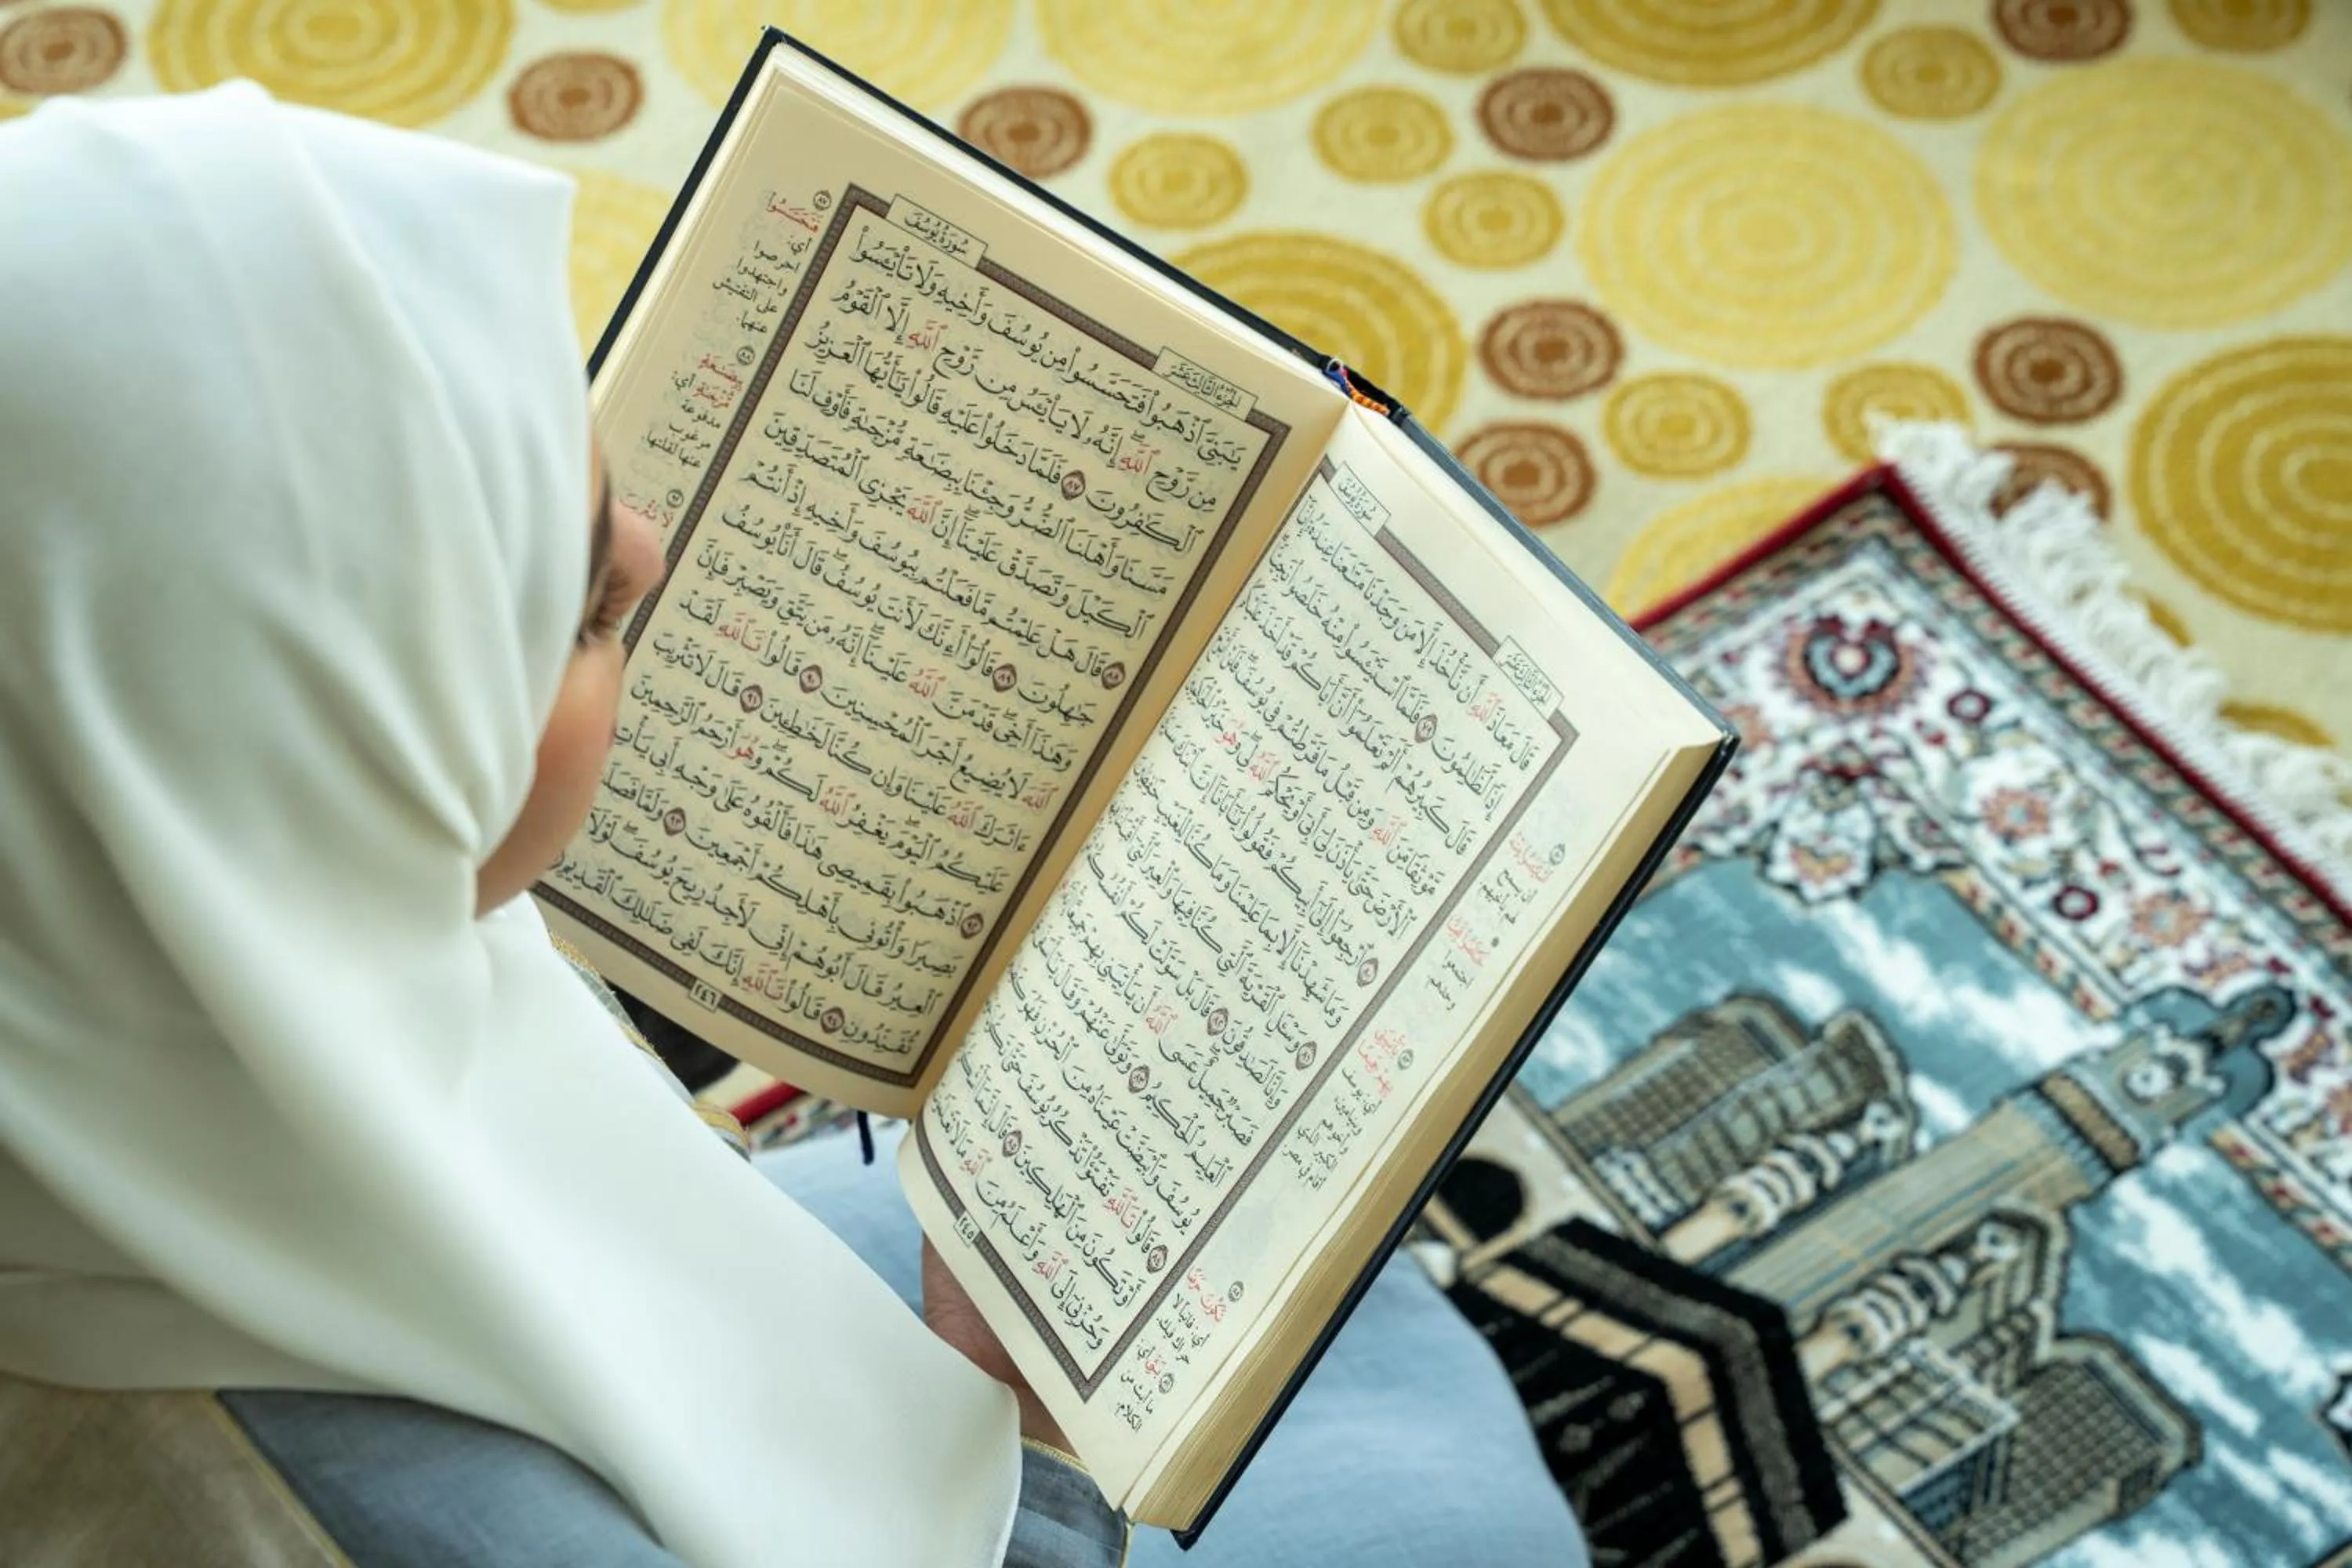 سُورَةُ يُوسُفَ
الجُزْءُ الثَّالِثَ عَشَرَ
قَالَ مَعَاذَ ٱللَّهِ أَن نَّأْخُذَ إِلَّا مَن وَجَدْنَا مَتَٰعَنَا عِندَهُۥٓ إِنَّآ
إِذًا لَّظَٰلِمُونَ ٧٩ فَلَمَّا ٱسْتَيْـَٔسُوا۟ مِنْهُ خَلَصُوا۟ نَجِيًّا
قَالَ كَبِيرُهُمْ أَلَمْ تَعْلَمُوٓا۟ أَنَّ أَبَاكُمْ قَدْ أَخَذَ
مَّوْثِقًا مِّنَ ٱللَّهِ وَمِن قَبْلُ مَا فَرَّطتُمْ فِى يُوسُفَ فَلَنْ
ٱلْأَرْضَ حَتَّىٰ يَأْذَنَ لِىٓ أَبِىٓ أَوْ يَحْكُمَ ٱللَّهُ لِى وَهُوَ خَيْرُ ٱلْحَٰكِمِينَ
٨٠ ٱرْجِعُوٓا۟ إِلَىٰٓ أَبِيكُمْ فَقُولُوا۟ يَٰٓأَبَانَآ إِنَّ ٱبْنَكَ
وَمَا شَهِدْنَآ إِلَّا بِمَا عَلِمْنَا وَمَا كُنَّا لِلْغَيْبِ حَٰفِظِينَ
٨١ وَسْـَٔلِ ٱلْقَرْيَةَ ٱلَّتِى كُنَّا فِيهَا وَٱلْعِيرَ ٱلَّتِىٓ
وَإِنَّا لَصَٰدِقُونَ ٨٢ قَالَ بَلْ سَوَّلَتْ لَكُمْ أَنفُسُكُمْ
فَصَبْرٌ جَمِيلٌ عَسَى ٱللَّهُ أَن يَأْتِيَنِى بِهِمْ جَمِيعًا
ٱلْعَلِيمُ ٱلْحَكِيمُ ٨٣ وَتَوَلَّىٰ عَنْهُمْ وَقَالَ يَٰٓأَسَفَىٰ
يُوسُفَ وَٱبْيَضَّتْ عَيْنَاهُ مِنَ ٱلْحُزْنِ فَهُوَ كَظِيمٌ
٨٤ قَالُوا۟ تَٱللَّهِ تَفْتَؤُا۟ تَذْكُرُ يُوسُفَ حَتَّىٰ تَكُونَ
أَوْ تَكُونَ مِنَ ٱلْهَٰلِكِينَ ٨٥ قَالَ إِنَّمَآ
وَحُزْنِىٓ إِلَى ٱللَّهِ وَأَعْلَمُ مِنَ ٱللَّهِ مَا لَا تَعْلَمُونَ
٢٤٥
سُورَةُ يُوسُفَ
الجُزْءُ الثَّالِثَ عَشَرَ
يَٰبَنِىَّ ٱذْهَبُوا۟ فَتَحَسَّسُوا۟ مِن يُوسُفَ وَأَخِيهِ وَلَا تَا۟يْـَٔسُوا۟
مِن رَّوْحِ ٱللَّهِ إِنَّهُۥ لَا يَا۟يْـَٔسُ مِن رَّوْحِ ٱللَّهِ إِلَّا ٱلْقَوْمُ
ٱلْكَٰفِرُونَ ٨٧ فَلَمَّا دَخَلُوا۟ عَلَيْهِ قَالُوا۟ يَٰٓأَيُّهَا ٱلْعَزِيزُ
مَسَّنَا وَأَهْلَنَا ٱلضُّرُّ وَجِئْنَا بِبِضَٰعَةٍ مُّزْجَىٰةٍ فَأَوْفِ لَنَا
ٱلْكَيْلَ وَتَصَدَّقْ عَلَيْنَآ إِنَّ ٱللَّهَ يَجْزِى ٱلْمُتَصَدِّقِينَ
٨٨ قَالَ هَلْ عَلِمْتُم مَّا فَعَلْتُم بِيُوسُفَ وَأَخِيهِ إِذْ أَنتُمْ
جَٰهِلُونَ ٨٩ قَالُوٓا۟ أَءِنَّكَ لَأَنتَ يُوسُفُ قَالَ أَنَا۠ يُوسُفُ
وَهَٰذَآ أَخِى قَدْ مَنَّ ٱللَّهُ عَلَيْنَآ إِنَّهُۥ مَن يَتَّقِ وَيَصْبِرْ فَإِنَّ
ٱللَّهَ لَا يُضِيعُ أَجْرَ ٱلْمُحْسِنِينَ ٩٠ قَالُوا۟ تَٱللَّهِ لَقَدْ
ءَاثَرَكَ ٱللَّهُ عَلَيْنَا وَإِن كُنَّا لَخَٰطِـِٔينَ ٩١ قَالَ لَا تَثْرِيبَ
عَلَيْكُمُ ٱلْيَوْمَ يَغْفِرُ ٱللَّهُ لَكُمْ وَهُوَ أَرْحَمُ ٱلرَّٰحِمِينَ
٩٢ ٱذْهَبُوا۟ بِقَمِيصِى هَٰذَا فَأَلْقُوهُ عَلَىٰ وَجْهِ أَبِى يَأْتِ
بَصِيرًا وَأْتُونِى بِأَهْلِكُمْ أَجْمَعِينَ ٩٣ وَلَمَّا فَصَلَتِ
ٱلْعِيرُ قَالَ أَبُوهُمْ إِنِّى لَأَجِدُ رِيحَ يُوسُفَ لَوْلَآ
تُفَنِّدُونِ ٩٤ قَالُوا۟ تَٱللَّهِ إِنَّكَ لَفِى ضَلَٰلِكَ ٱلْقَدِيمِ
٢٤٦
٨٧
فَتَحَسَّسُوا
أي:
احرصوا
واجتهدوا
على التفتيش
عنهما.
٨٨
بِضَٰعَةٍ
مُّزْجَىٰةٍ أي:
مدفوعة
مرغوب
عنها لقلتها.